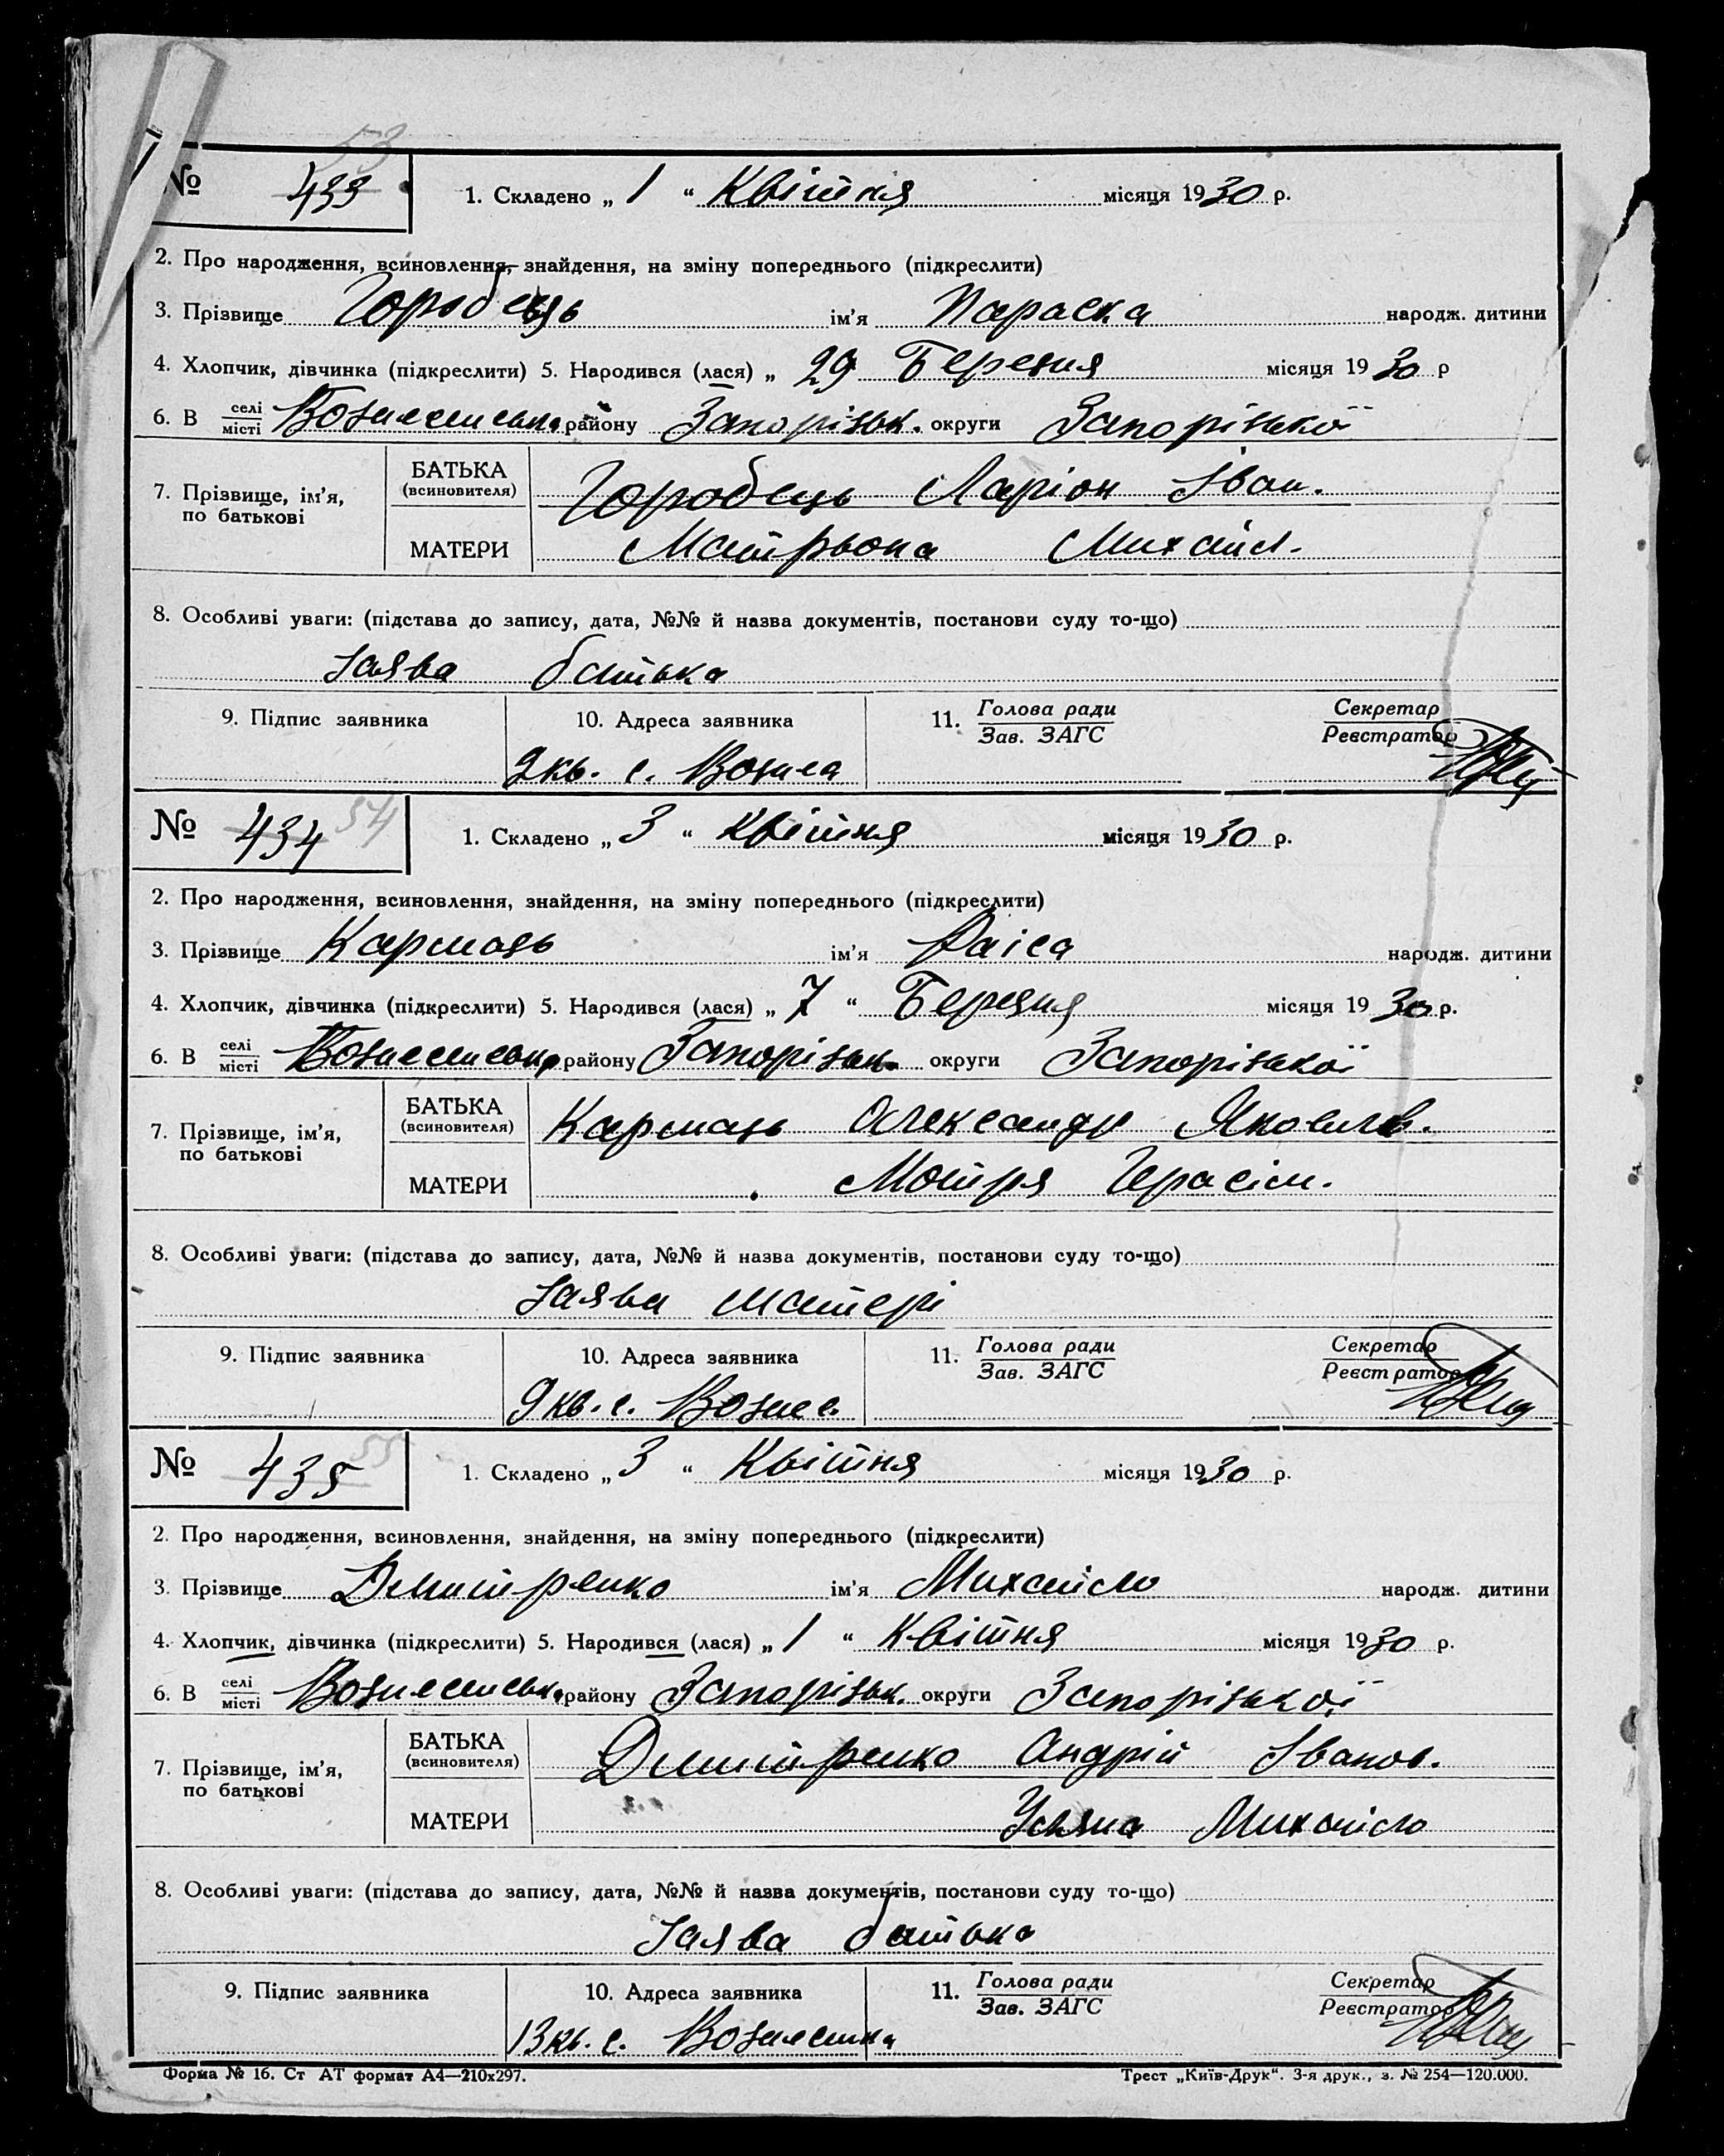 53
№ 433 1. Складено „ 1 “ Квітня місяця 1930 р.
2. Про народження, всиновлення, знайдення, на зміну попереднього (підкреслити)
3. Прізвище Горобець ім’я Параска народж. дитини
4. Хлопчик, дівчинка (підкреслити) 5. Народився (лася) „ 29 Березня місяця 1930 р
6. В селі/місті Вознесенськ. району Запорізьк. округи Запорізької
7. Прізвище, ім’я, по батькові
БАТЬКА (всиновителя) Горобець Ларіон Іван.
МАТЕРИ Матрьона Михайл.
8. Особливі уваги: (підстава до запису, дата, №№ й назва документів, постанови суду то-що)
Заява батька
9. Підпис заявника 10. Адреса заявника 11. Голова ради/Зав. ЗАГС Секретар/Реєстратор
9 кв. с. Вознес
№ 434 54 1. Складено „ 3 “ Квітня місяця 1930 р.
2. Про народження, всиновлення, знайдення, на зміну попереднього (підкреслити)
3. Прізвище Кармазь ім’я Раіса народж. дитини
4. Хлопчик, дівчинка (підкреслити) 5. Народився (лася) „ 7 “ Березня місяця 1930 р.
6. В селі/місті Вознесенськ. району Запорізьк. округи Запорізької
7. Прізвище, ім’я, по батькові
БАТЬКА (всиновителя) Кармазь Олександр Яковлев.
МАТЕРИ Мотря Герасім.
8. Особливі уваги: (підстава до запису, дата, №№ й назва документів, постанови суду то-що)
Заява матері
9. Підпис заявника 10. Адреса заявника 11. Голова ради/Зав. ЗАГС Секретар/Реєстратор
9 кв. с. Вознес.
№ 435 55 1. Складено „ 3 “ Квітня місяця 1930 р.
2. Про народження, всиновлення, знайдення, на зміну попереднього (підкреслити)
3. Прізвище Дмитренко ім’я Михайло народж. дитини
4. Хлопчик, дівчинка (підкреслити) 5. Народився (лася) „ 1 “ Квітня місяця 1930 р.
6. В селі/місті Вознесенськ. району Запорізьк. округи Запорізької
7. Прізвище, ім’я, по батькові
БАТЬКА (всиновителя) Дмитренко Андрій Іванов.
МАТЕРИ Уляна Михайло
8. Особливі уваги: (підстава до запису, дата, №№ й назва документів, постанови суду то-що)
Заява батька
9. Підпис заявника 10. Адреса заявника 11. Голова ради/Зав. ЗАГС Секретар/Реєстратор
13 кв. с. Вознесенка
Форма № 16. Ст АТ формат А4—210х297. Трест „Київ-Друк“. 3-я друк., з. № 254—120.000.